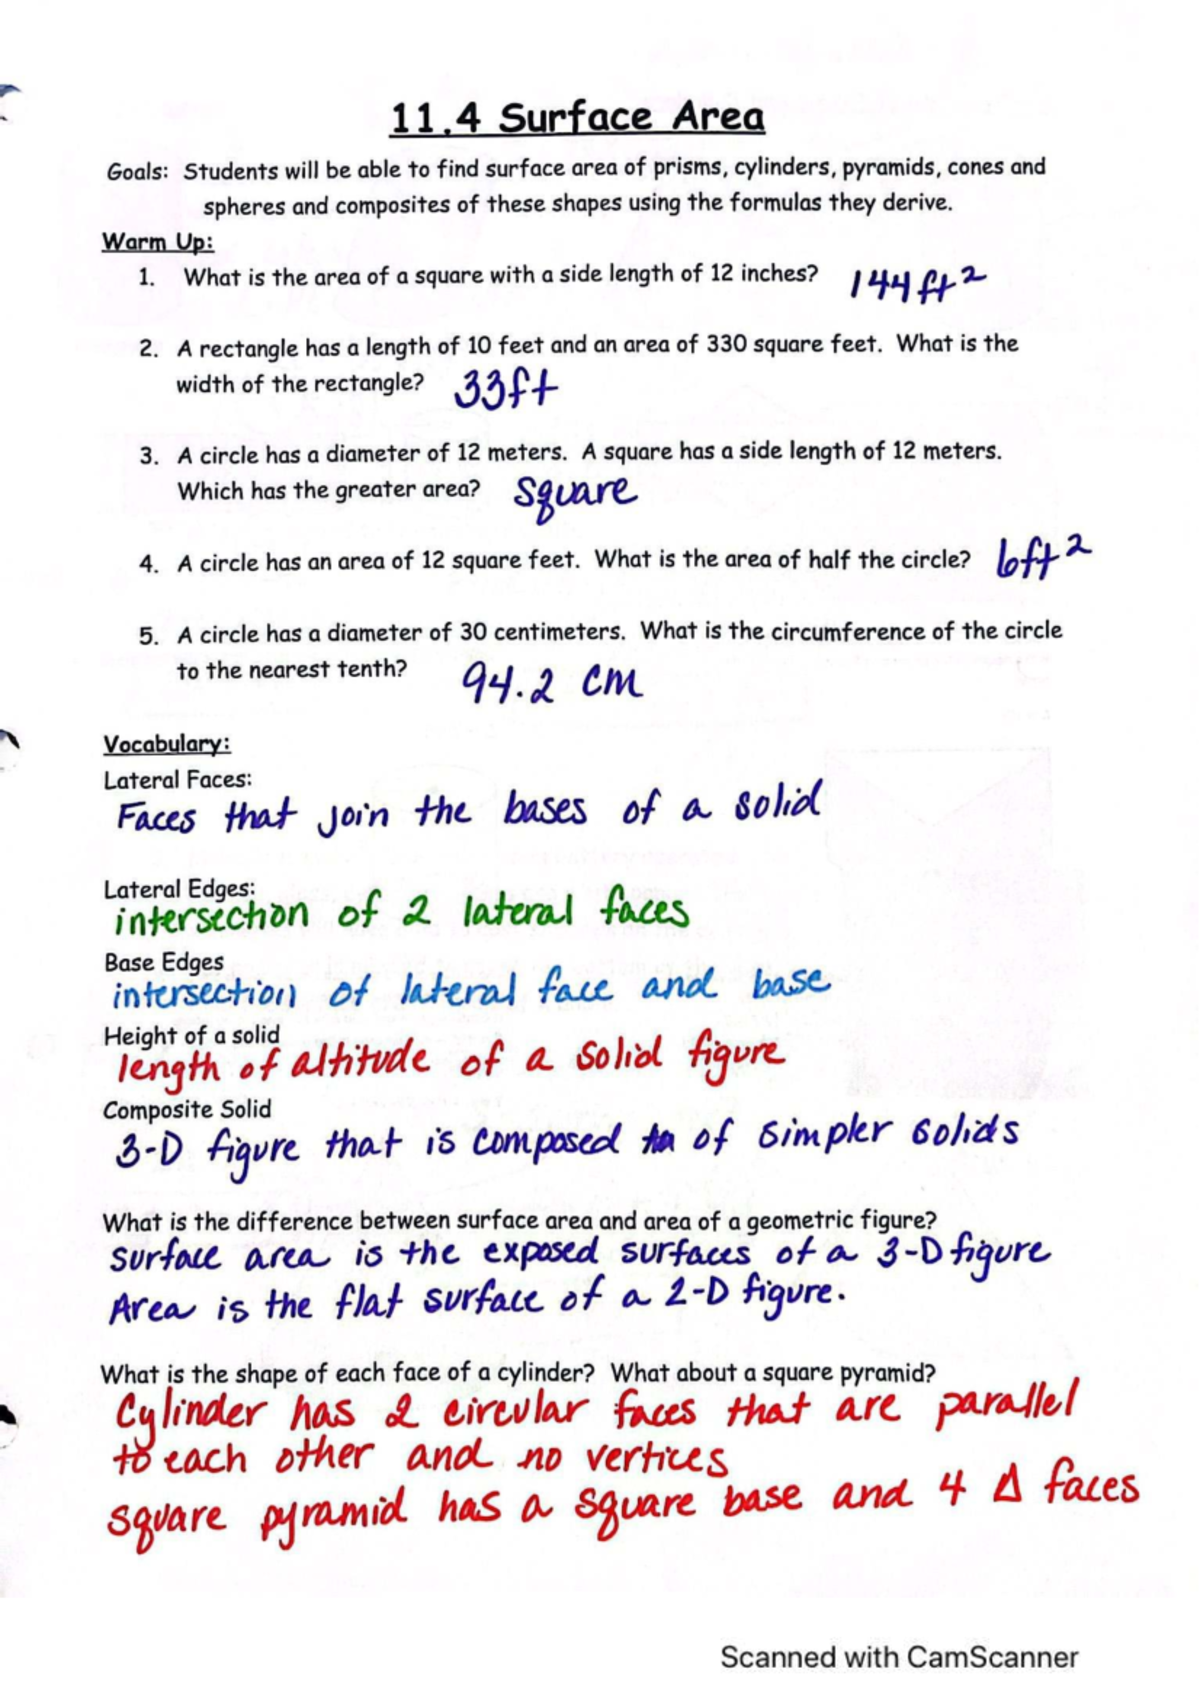 11.4 Surface Area
Goals: Students will be able to find surface area of prisms, cylinders, pyramids, cones and
spheres and composites of these shapes using the formulas they derive.
Warm Up:
1. What is the area of a square with a side length of 12 inches? 144ft²
2. A rectangle has a length of 10 feet and an area of 330 square feet. What is the
width of the rectangle? 33ft
3. A circle has a diameter of 12 meters. A square has a side length of 12 meters.
Which has the greater area? square
4. A circle has an area of 12 square feet. What is the area of half the circle? 6ft²
5. A circle has a diameter of 30 centimeters. What is the circumference of the circle
to the nearest tenth? 94.2 cm
Vocabulary:
Lateral Faces:
Faces that join the bases of a solid
Lateral Edges:
intersection of 2 lateral faces
Base Edges
intersection of lateral face and base
Height of a solid
length of altitude of a solid figure
Composite Solid
3-D figure that is composed of simpler solids
What is the difference between surface area and area of a geometric figure?
surface area is the exposed surfaces of a 3-D figure
Area is the flat surface of a 2-D figure.
What is the shape of each face of a cylinder? What about a square pyramid?
Cylinder has 2 circular faces that are parallel
to each other and no vertices
square pyramid has a square base and 4 Δ faces
Scanned with CamScanner